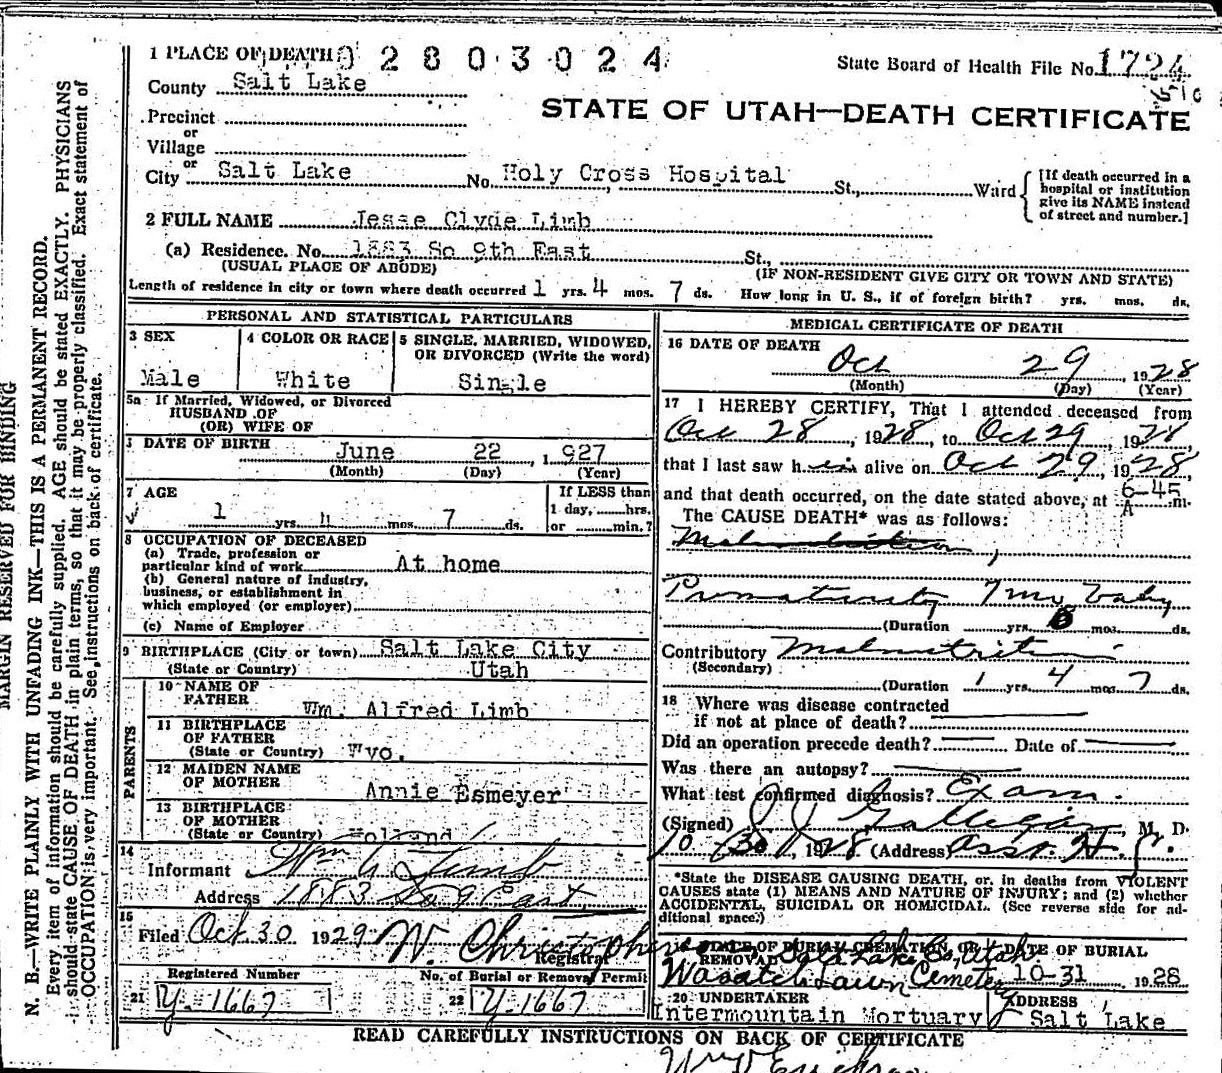 1 PLACE OF DEATH 0 2 8 0 3 0 2 4
State Board of Health File No. 1724
County Salt Lake
STATE OF UTAH—DEATH CERTIFICATE
Precinct
or
Village
or
City Salt Lake No. Holy Cross Hospital St., Ward
[If death occurred in a
hospital or institution
give its NAME instead
of street and number.]
2 FULL NAME Jesse Clyde Limb
(a) Residence. No. 1883 So 9th East St.,
(USUAL PLACE OF ABODE) (IF NON-RESIDENT GIVE CITY OR TOWN AND STATE)
Length of residence in city or town where death occurred 1 yrs. 4 mos. 7 ds. How long in U. S., if of foreign birth? yrs. mos. ds.
PERSONAL AND STATISTICAL PARTICULARS
3 SEX
Male
4 COLOR OR RACE
White
5 SINGLE, MARRIED, WIDOWED,
OR DIVORCED (Write the word)
Single
5a If Married, Widowed, or Divorced
HUSBAND OF
(OR) WIFE OF
DATE OF BIRTH June 22, 1927
(Month) (Day) (Year)
7 AGE
1 yrs. 4 mos. 7 ds.
If LESS than
1 day, hrs.
or min.?
8 OCCUPATION OF DECEASED
(a) Trade, profession or
particular kind of work At home
(b) General nature of industry,
business, or establishment in
which employed (or employer)
(c) Name of Employer
9 BIRTHPLACE (City or town) Salt Lake City
(State or Country) Utah
PARENTS
10 NAME OF
FATHER Wm. Alfred Limb
11 BIRTHPLACE
OF FATHER
(State or Country) Wyo.
12 MAIDEN NAME
OF MOTHER Annie Esmeyer
13 BIRTHPLACE
OF MOTHER
(State or Country) Holland
14
Informant Wm A Limb
Address 1883 So 9 East
15
Filed Oct. 30 1929 W. Christopherson
Registrar
Registered Number
21 Y-1667
No. of Burial or Removal Permit
22 Y-1667
MEDICAL CERTIFICATE OF DEATH
16 DATE OF DEATH
Oct 29, 1928
(Month) (Day) (Year)
17 I HEREBY CERTIFY, That I attended deceased from
Oct 28, 1928, to Oct 29, 1928,
that I last saw him alive on Oct 29, 1928,
and that death occurred, on the date stated above, at 6-45 A m.
The CAUSE DEATH* was as follows:
Malnutrition,
Prematurity 7 mo baby
(Duration yrs. mos. ds.
Contributory Malnutrition
(Secondary)
(Duration 1 yrs. 4 mos. 7 ds.
18 Where was disease contracted
if not at place of death?
Did an operation precede death? Date of
Was there an autopsy?
What test confirmed diagnosis? Exam.
(Signed) J J Galligan, M. D.
10/30, 1928 (Address)
*State the DISEASE CAUSING DEATH, or, in deaths from VIOLENT
CAUSES state (1) MEANS AND NATURE OF INJURY; and (2) whether
ACCIDENTAL, SUICIDAL OR HOMICIDAL. (See reverse side for ad-
ditional space.)
19 PLACE OF BURIAL, CREMATION, OR
REMOVAL Salt Lake Co, Utah
Wasatch Lawn Cemetery
DATE OF BURIAL
10-31 1928
20 UNDERTAKER
Intermountain Mortuary
ADDRESS
Salt Lake
READ CAREFULLY INSTRUCTIONS ON BACK OF CERTIFICATE
MARGIN RESERVED FOR BINDING
N. B.—WRITE PLAINLY WITH UNFADING INK—THIS IS A PERMANENT RECORD.
Every item of information should be carefully supplied. AGE should be stated EXACTLY. PHYSICIANS
should state CAUSE OF DEATH in plain terms, so that it may be properly classified. Exact statement of
OCCUPATION is very important. See instructions on back of certificate.